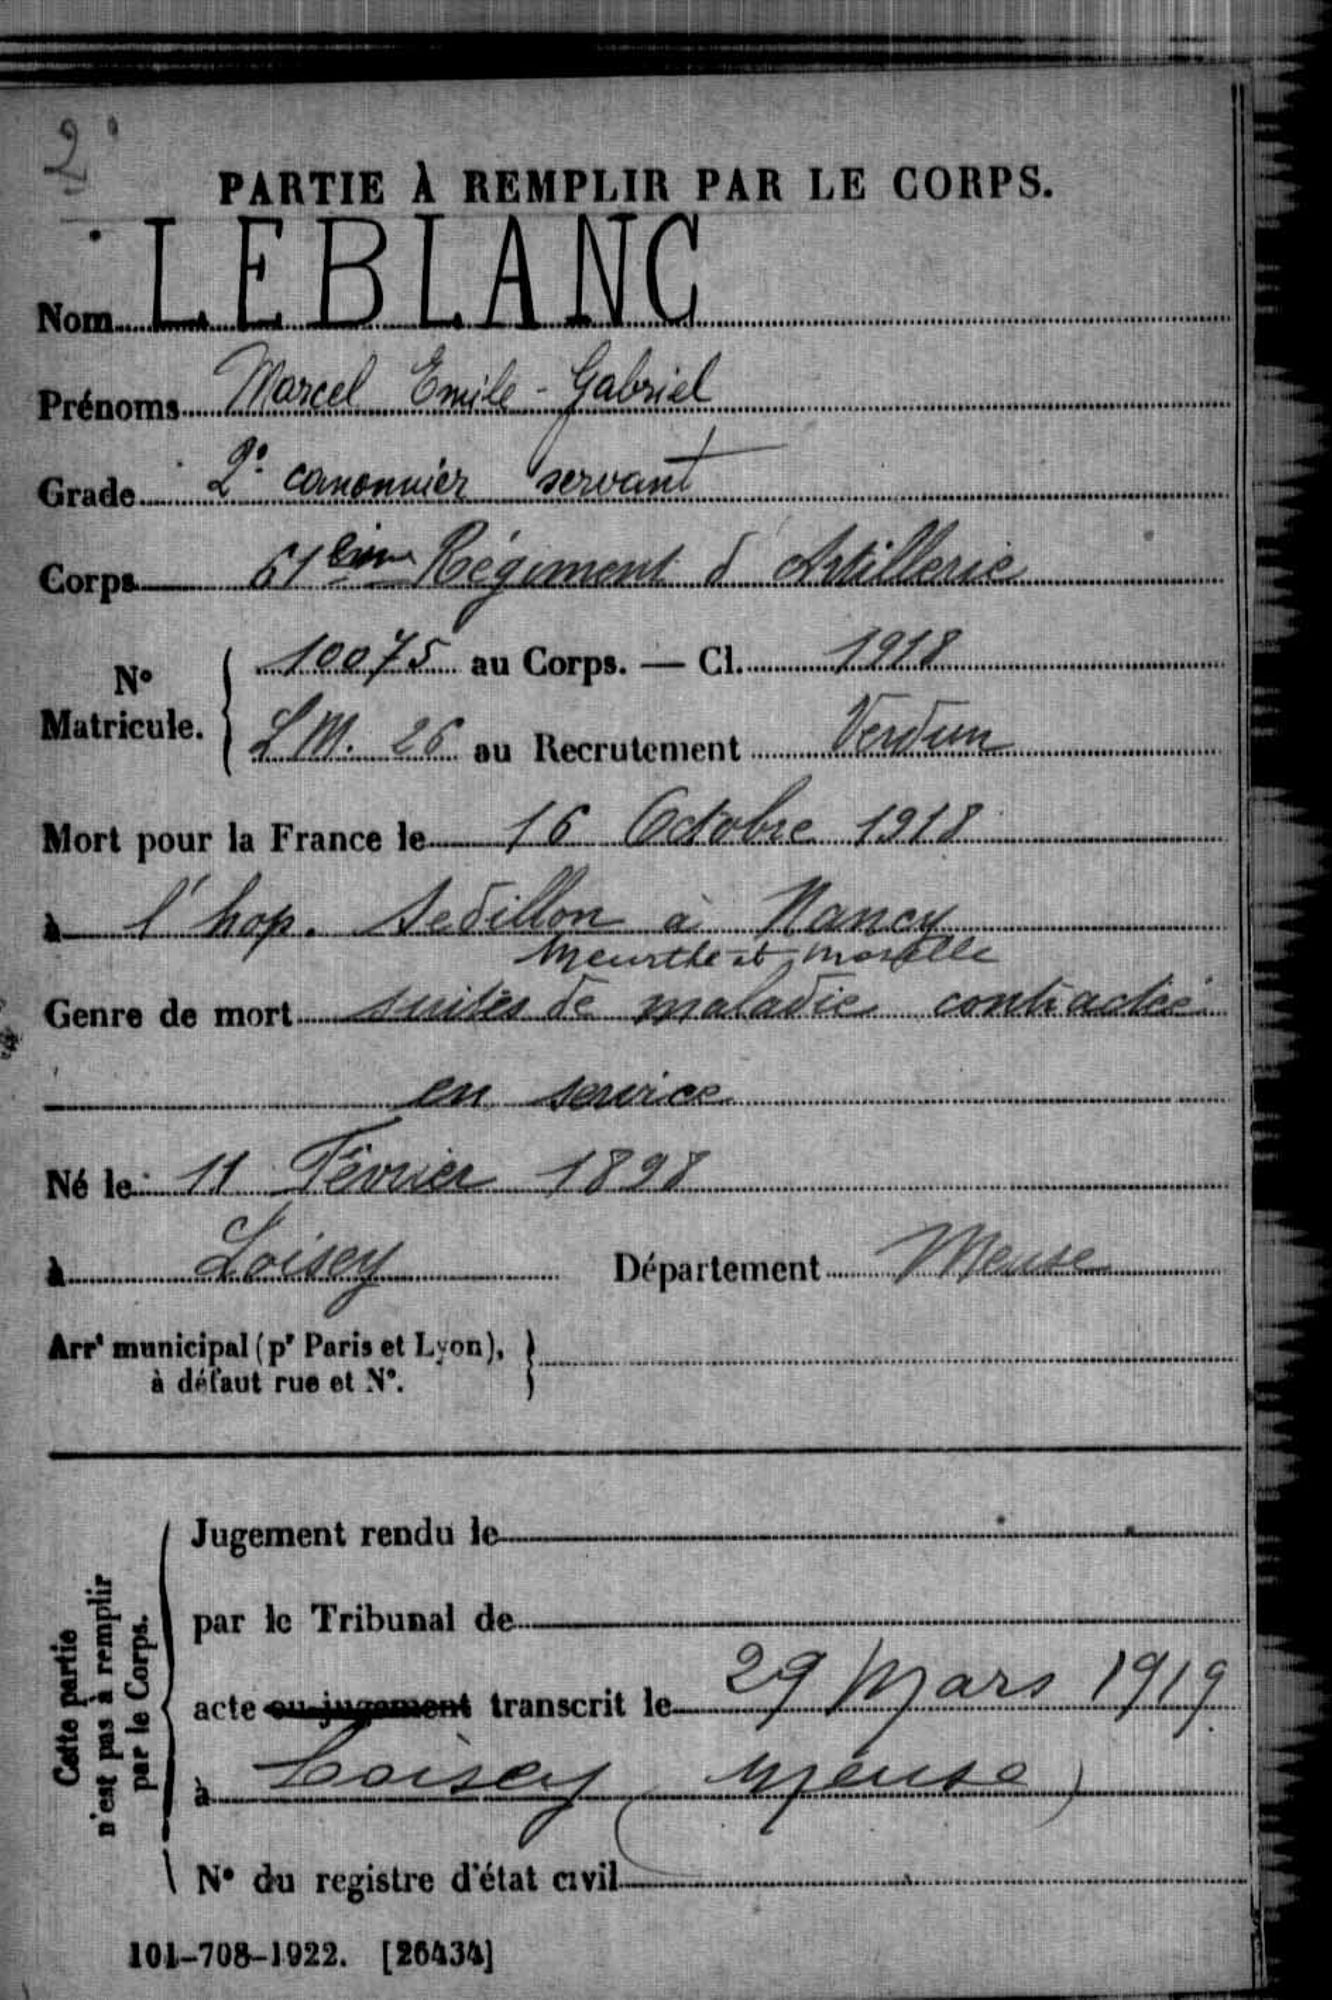 2°
PARTIE À REMPLIR PAR LE CORPS.
Nom LEBLANC
Prénoms Marcel Emile-Gabriel
Grade 2e canonnier servant
Corps 61ème Régiment d'Artillerie
N° Matricule. 10075 au Corps. — Cl. 1918
L.M. 26 au Recrutement Verdun
Mort pour la France le 16 Octobre 1918
à l'hop. Sedillon à Nancy
Meurthe et Moselle
Genre de mort suites de maladie contractée
en service
Né le 11 Février 1898
à Loisey Département Meuse
Arrt municipal (pr Paris et Lyon),
à défaut rue et N°.
Cette partie n'est pas à remplir par le Corps.
Jugement rendu le
par le Tribunal de
acte ou jugement transcrit le 29 Mars 1919
à Loisey (Meuse)
N° du registre d'état civil
101-708-1922. [26434]